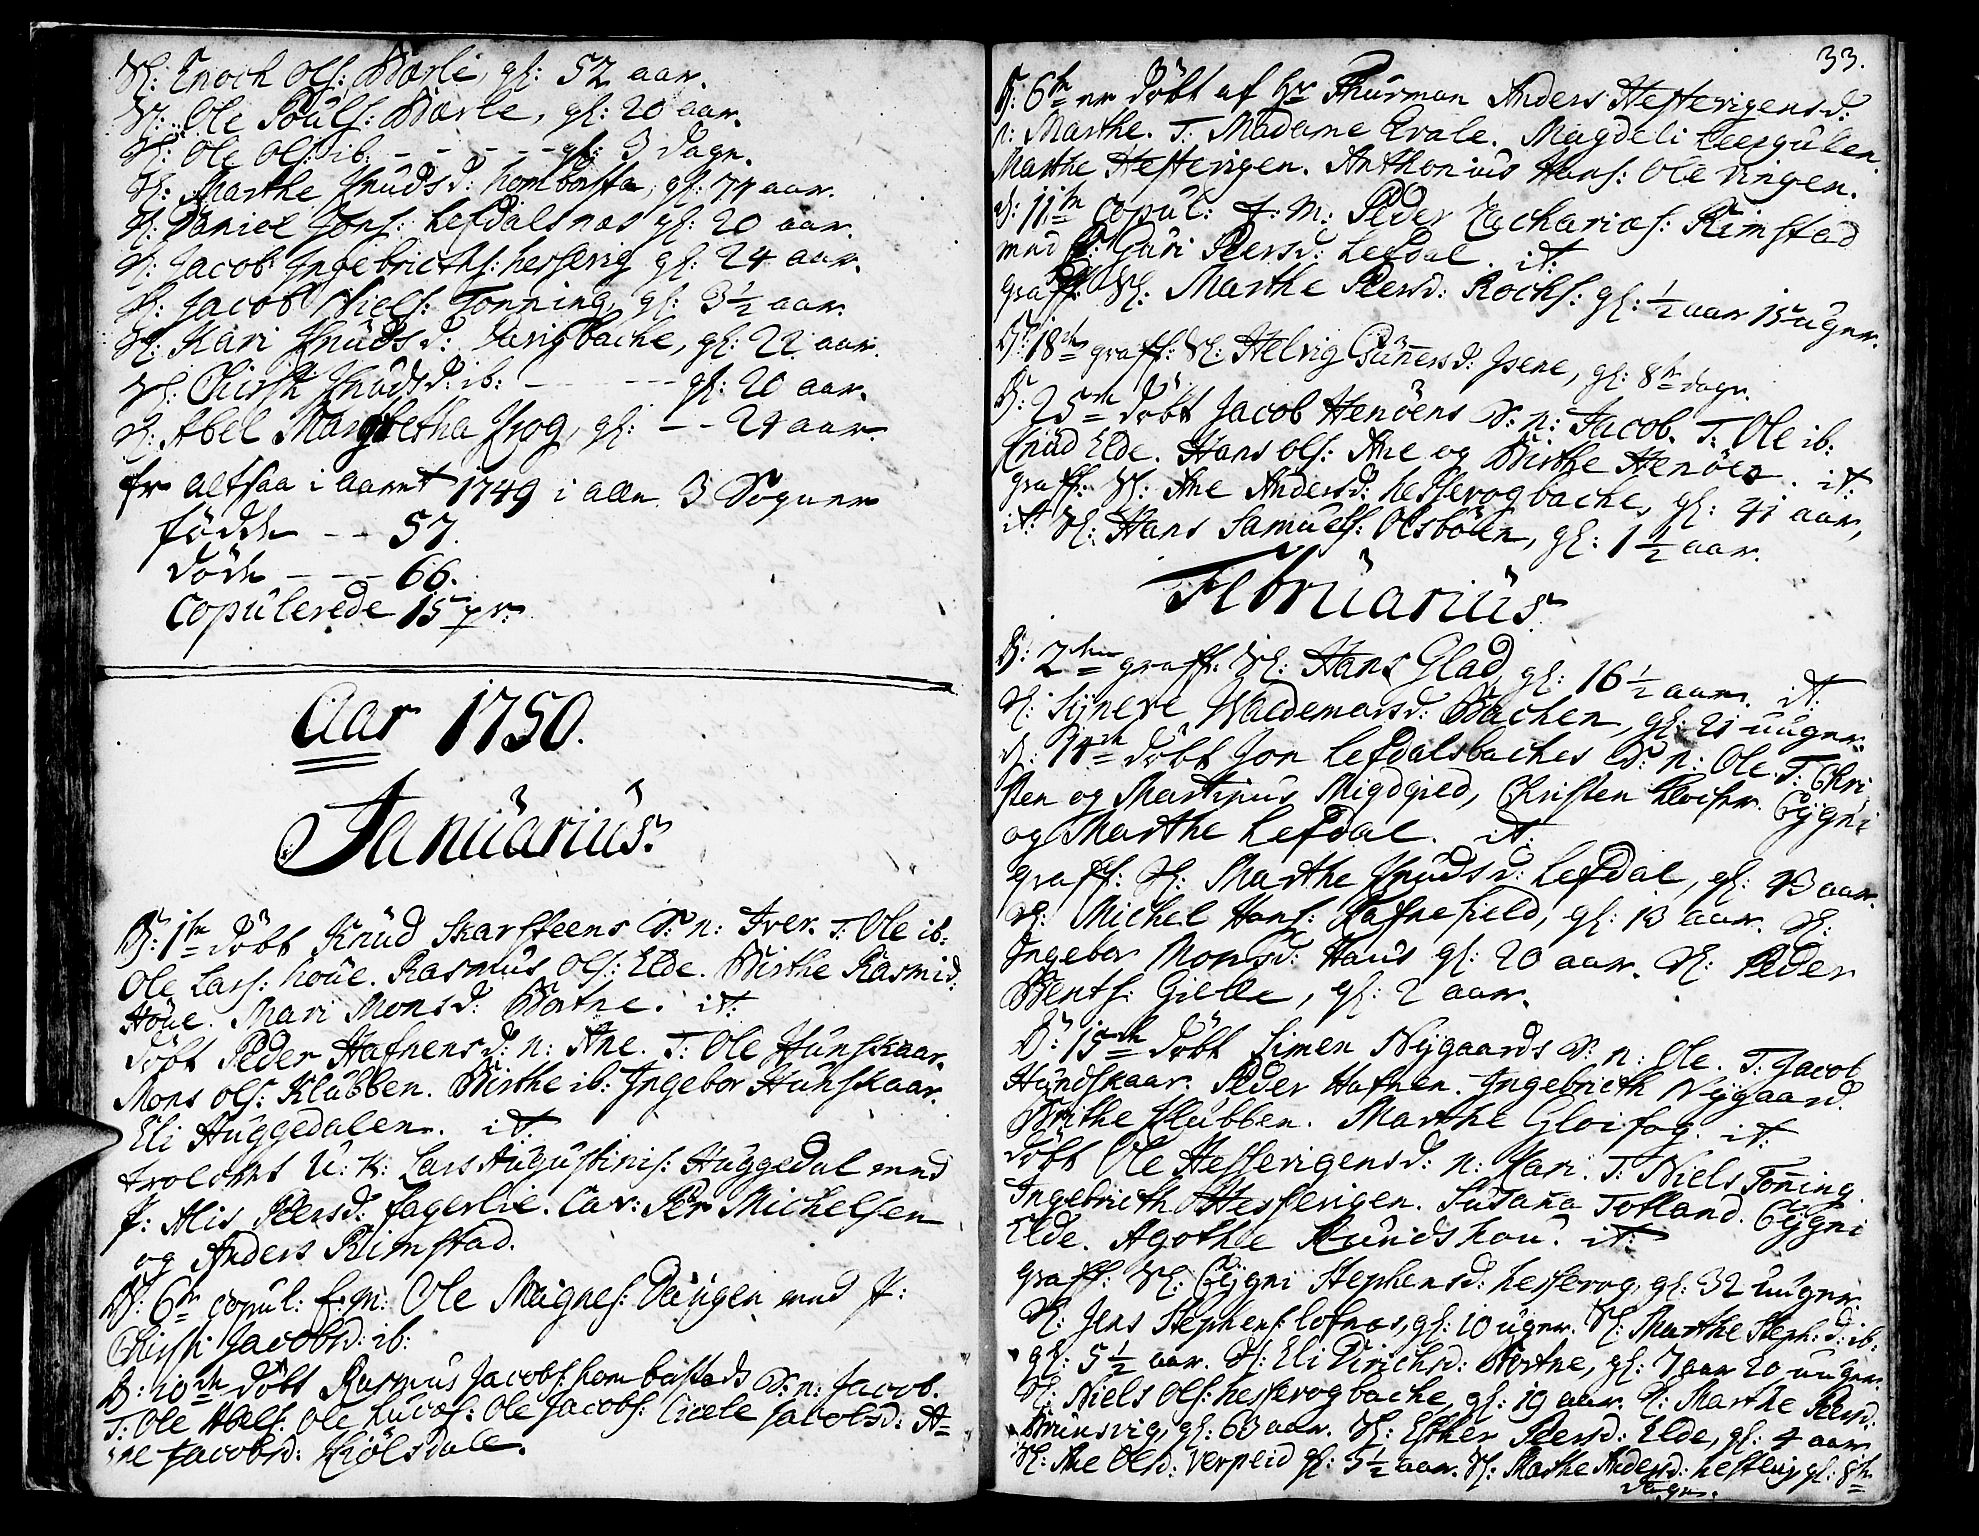 Sl: Enoch Ols: Bærle, gl: 52 aar.
Sl: Ole Pouls: Bærle, gl: 20 aar.
Sl: Ole Ols: ib: - - - - - gl: 3 dage.
Sl: Marthe Knudsd: hornbasta, gl: 74 aar.
Sl: Daniel Jons: Lefdalsnæs gl: 20 aar.
Sl: Jacob Ingebricths: hesserig gl: 24 aar.
Sl: Jacob Niels: Tonning, gl: 3½ aar.
Sl: Kari Knudsd: Barigbache, gl: 22 aar.
Sl: Chirsti Knudsd: ib: - - - - - gl: 20 aar.
Sl: Abel Margretha Krog, gl: - - 24 aar.
Er altsaa i Aaret 1749 i alle 3 Sogner
fødde - - 57.
døde - - - 66.
Copulerede 15 pr:
Aar 1750.
Januarius.
D: 1te døbt Knud Skarsteens S: n: Iver. T: Ole ib:
Ole Lars: houe. Rasmus Ols: Elde. Birthe Rasmisd:
Houe. Mari Monsd: Bortne. it:
døbt Peder Hafnensd: n: Ane. T: Ole Hunskaar.
Mons Ols: Klubben. Birthe ib: Ingebor Hunskaar.
Eli Huggedalen. it:
trolovet U: K: Lars Augustinis: Huggedal med
P: Alis Peersd: fagerlie. Cav: Per Michelsen
og Anders Rimstad.
D: 6te copul: E: M: Ole Magnes: Vaagen med P:
Chirsti Jacobsd: ib:
D: 10de døbt Rasmus Jacobs: hornbastads S: n: Jacob.
T: Ole Niels: Ole Lucas: Ole Jacobs: Cicele Jacobsd: A-
ne Jacobsd: Kiølsdale.
33.
D: 6te er døbt af Hr Thurman Anders Hesterigensd:
n: Marthe. T: Madame Qvale. Magdeli Leergulen
Marthe Hesterigen. Anthonius Hans: Ole ringen.
D: 11te Copul: E: M: Peder Zacharias: Rimstad
med P: Guri Peersd: Lefdal. it:
graff: Sl: Marthe Peersd: Rochs: gl: ½ aar 15 uger.
D: 18de graff: Sl: Helvig Gunnersd: Isene, gl: 8te dage.
D: 25de døbt Jacob Henøens S: n: Jacob. T: Ole ib:
Knud Elde. Hans Ols: Ane og Birthe Henøen. it:
graff: Sl: Ane Andersd: hesserogbache, gl: 41 aar,
it: Sl: Hans Samuels: Olsbølen, gl: 1½ aar.
Februarius
D: 2den graff: Sl: Hans Glad, gl: 16½ aar. it:
Sl: Signere Waldemarsd: Bachen, gl: 21 uuger.
D: 14de døbt Jon Lefdalsbaches S: n: Ole. T: Chri
sten og Martinus Migdgied, Christen Klocher. Gygni
og Marthe Lefdal. it:
graff: Sl: Marthe Knudsd: Lefdal, gl: 23 aar.
Sl: Michel Hans: Rafnefield, gl: 13 aar. Sl:
Ingebor Monsd: Haus gl: 20 aar. Sl: Peder
Bents: Gielle, gl: 2 aar.
D: 15de døbt Simen Nygaards S: n: Ole. T: Jacob
Hundskaar. Peder Hafnen. Ingebricth Nygaard.
Birthe Klubben. Marthe Gloifog. it:
døbt Ole Hesserigensd: n: Kari. T: Niels Tonning
Ingebricth Hesserigen. Susana Totland. Gygni
Elde. Agothe Rundshou: it:
graff: Sl: Gygni Stephensd: hesserog, gl: 32 uuger.
Sl: Jens Stephens: Lofnæs, gl: 10 uger. Sl: Marthe Steph:d: ib:
gl: 5½ aar. Sl: Eli Dirichsd: Bortne, gl: 7 aar 20 uuger.
Sl: Niels Ols: hesserogbache, gl: 19 aar. Sl: Marthe Peersd:
Brunsvig, gl: 63 aar. Sl: Esther Peersd: Elde, gl: 4 aar
Sl: Ane Olsd: Verpeid gl: 5½ aar. Sl: Marthe Andersd: hesterig gl: 8te
dage.